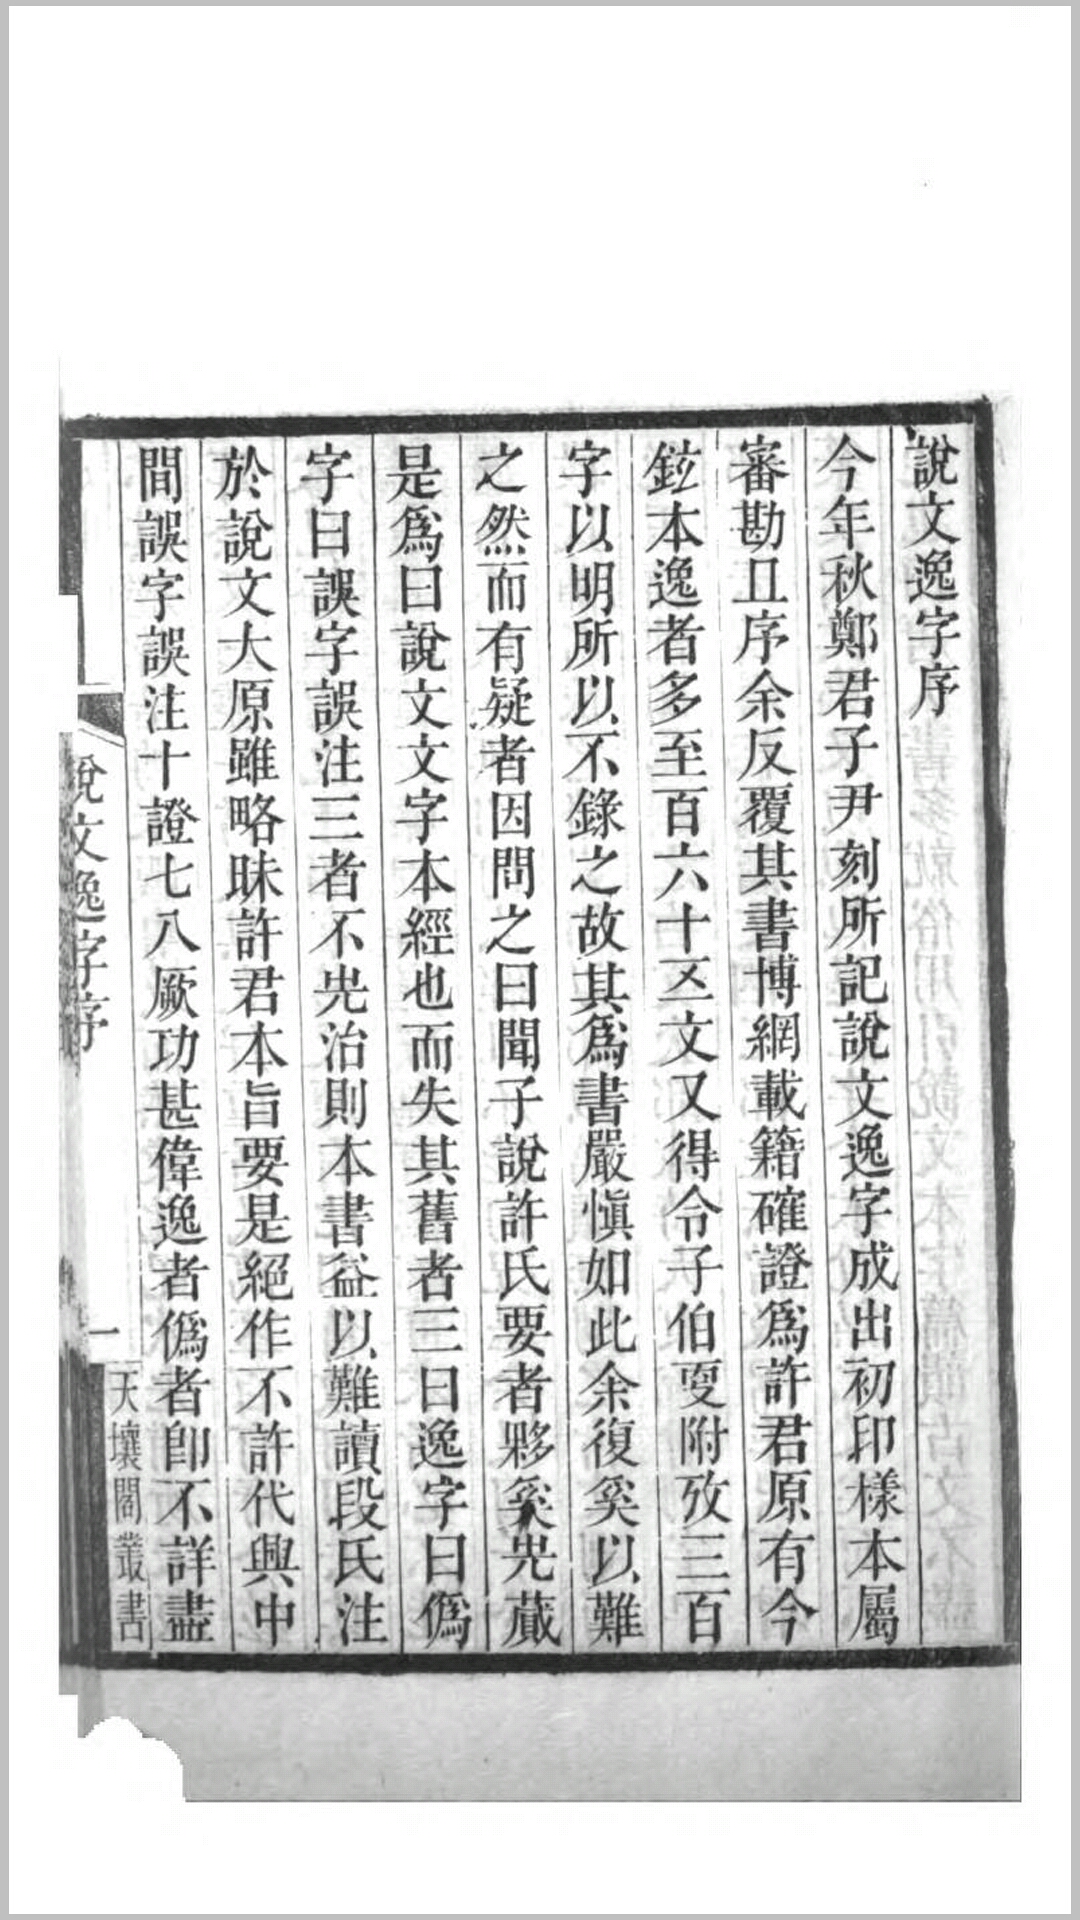 說文逸字序
今年秋鄭君子尹刻所記說文逸字成出初印樣本屬
審勘且序余反覆其書博網載籍確證爲許君原有今
鉉本逸者多至百六十㐅文又得令子伯㪅附攷三百
字以明所以不錄之故其爲書嚴愼如此余復奚以難
之然而有疑者因問之曰聞子說許氏要者夥奚兂蕆
是爲曰說文文字本經也而失其舊者三曰逸字曰僞
字曰誤字誤注三者不兂治則本書益以難讀段氏注
於說文大原雖略昧許君本旨要是絕作不許代興中
間誤字誤注十證七八厥功甚偉逸者僞者卽不詳盡
說文逸字序
一
天壤閣叢書